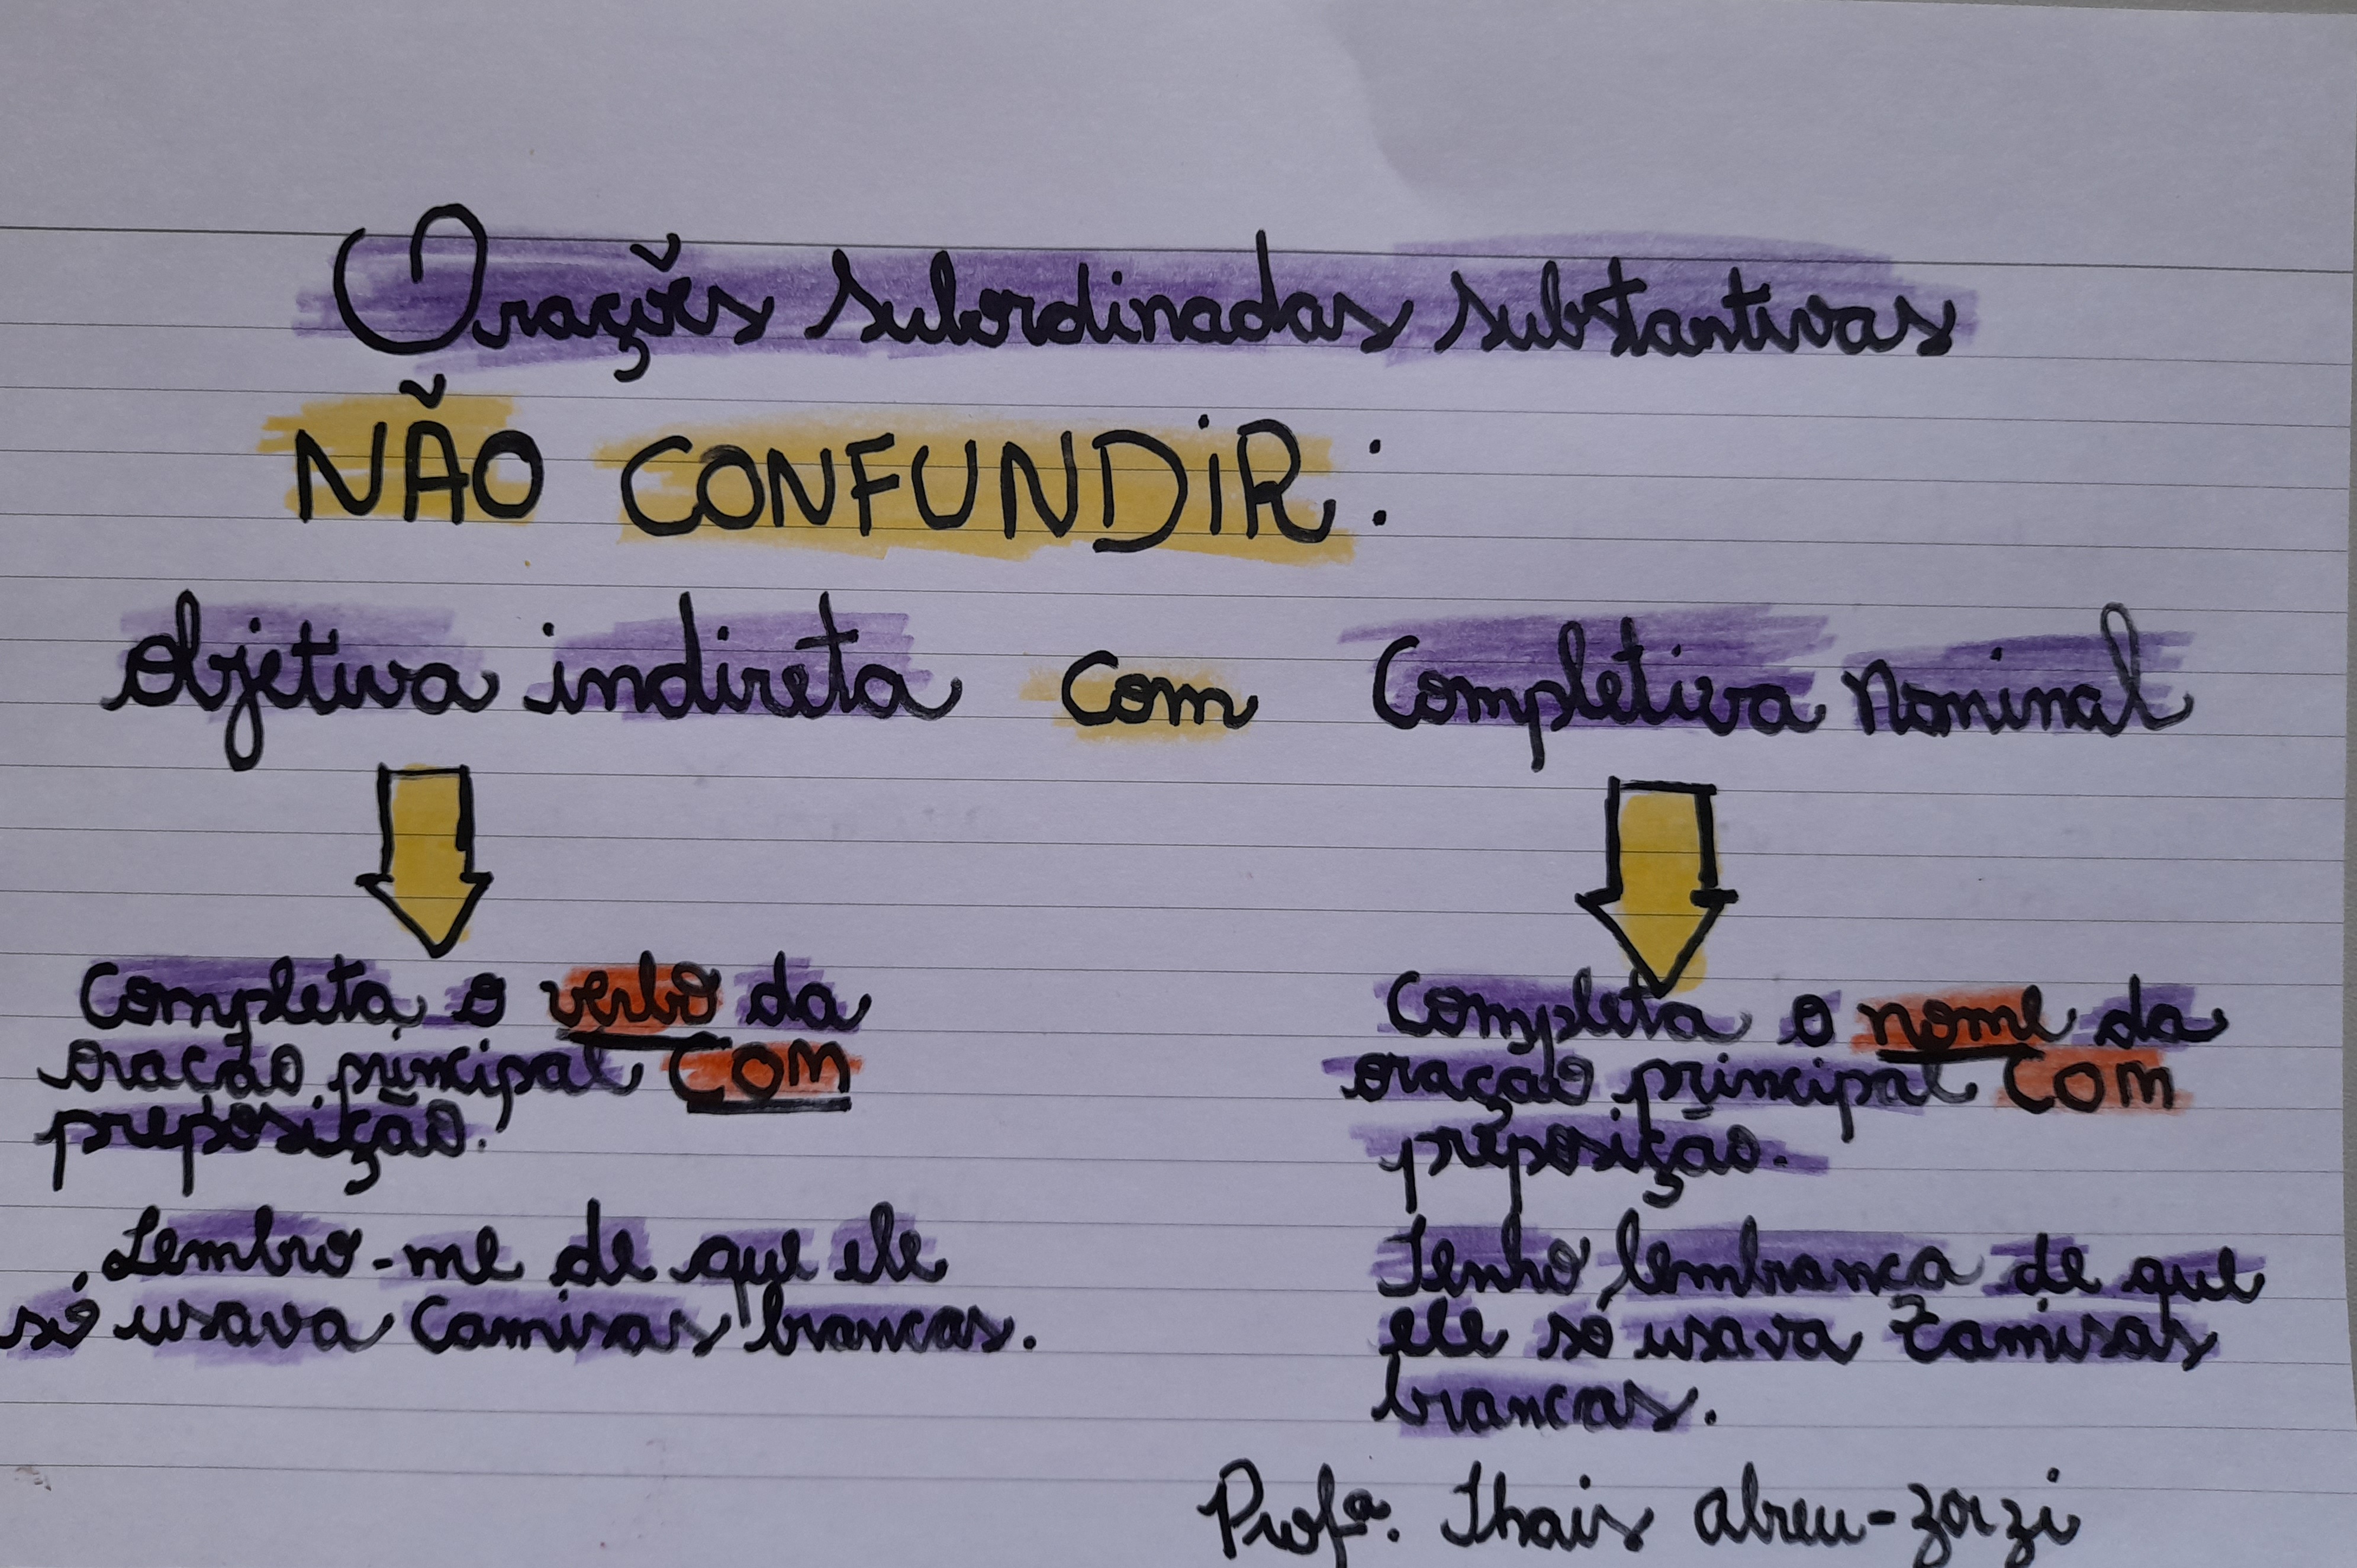 Orações subordinadas substantivas
NÃO CONFUNDIR:
Objetiva indireta com Completiva Nominal
Completa o verbo da
oração principal COM
preposição.
Lembro-me de que ele
só usava camisas brancas.
Completa o nome da
oração principal COM
preposição.
Tenho lembrança de que
ele só usava camisas
brancas.
Profª. Thais Abreu-Zorzi